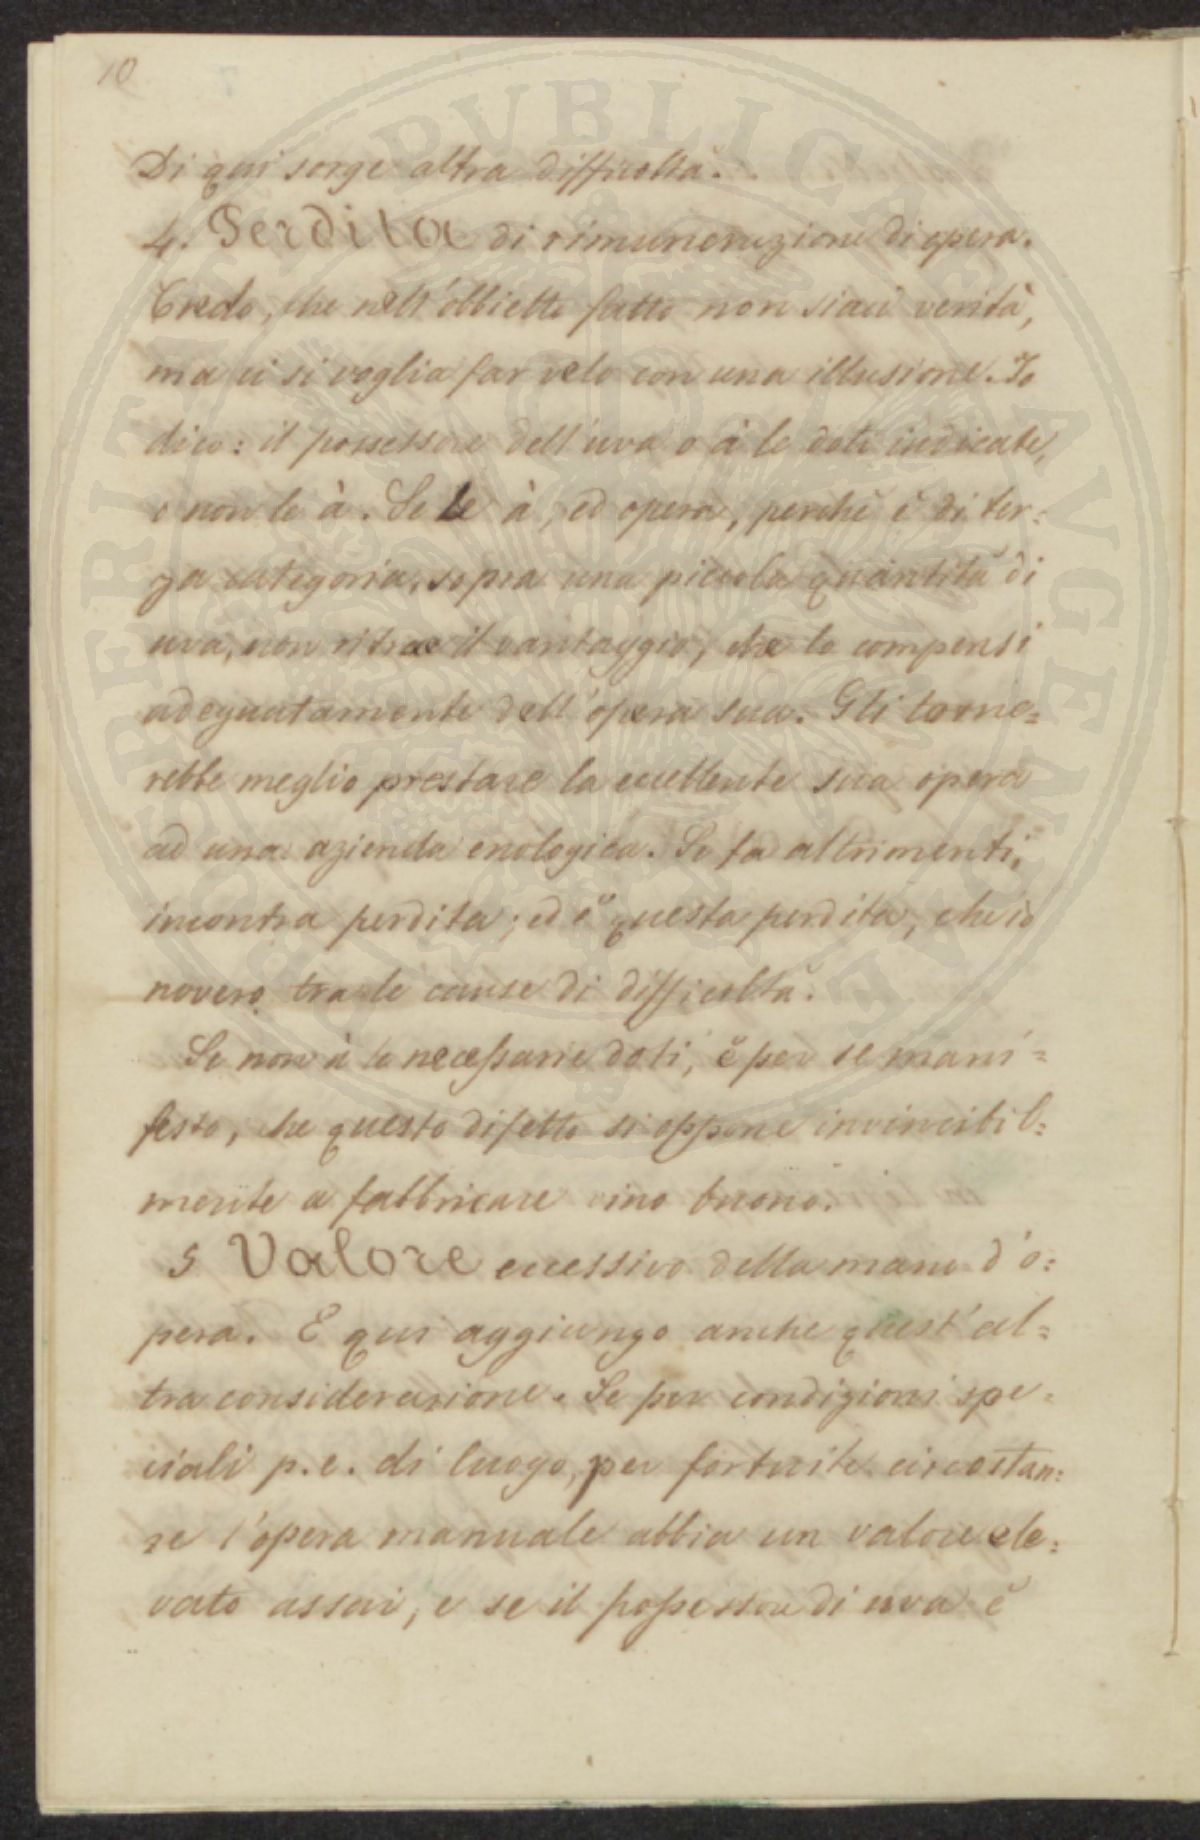 10
Di qui sorge altra difficoltà.
4. Perdita di rimunerazione di opera.
Credo, che nell'obbietto fatto non siavi verità,
ma vi si voglia far velo con una illusione. Io
dico: il possessore dell'uva o à le doti indicate,
o non le à. Se le à, ed opera, perchè è di ter=
za categoria, sopra una piccola quantità di
uva, non ritrae il vantaggio, che lo compensi
adeguatamente dell'opera sua. Gli torne=
rebbe meglio prestare la eccellente sua opera
ad una azienda enologica. Se fa altrimenti,
incontra perdita; ed è questa perdita, che io
novero tra le cause di difficoltà.
Se non à le necessarie doti, è per se mani=
festo, che questo difetto si oppone invincibil=
mente a fabbricare vino buono.
5 Valore eccessivo della mano d'o=
pera. E qui aggiungo anche quest'al=
tra considerazione. Se per condizioni spe=
ciali p.e. di luogo, per fortuite circostan=
ze l'opera manuale abbia un valore ele=
vato assai, e se il possessore di uva è
PROSPERITATI PUBLICAE AUGENDAE